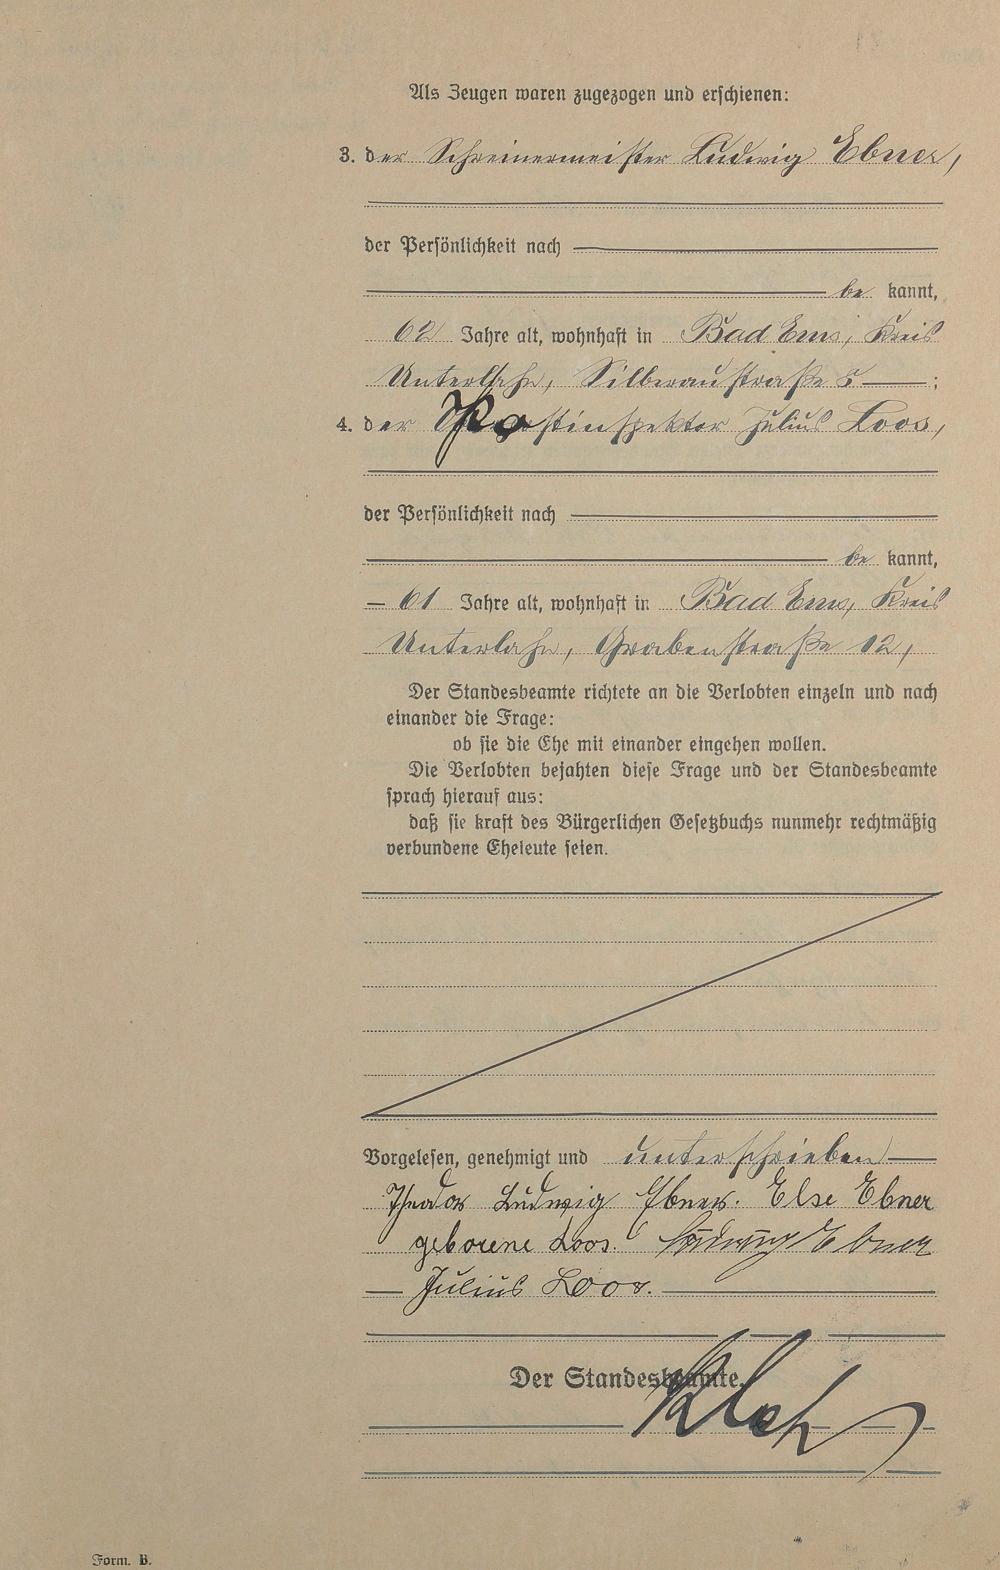 Als Zeugen waren zugezogen und erschienen:
3. der Schreinermeister Ludwig Ebner,
der Persönlichkeit nach
be kannt,
62 Jahre alt, wohnhaft in Bad Ems, Kreis
Unterlahn, Silberaustraße 5 ;
4. der Postinspektor Julius Loos,
der Persönlichkeit nach
be kannt,
61 Jahre alt, wohnhaft in Bad Ems, Kreis
Unterlahn, Grabenstraße 12,
Der Standesbeamte richtete an die Verlobten einzeln und nach
einander die Frage:
ob sie die Ehe mit einander eingehen wollen.
Die Verlobten bejahten diese Frage und der Standesbeamte
sprach hierauf aus:
daß sie kraft des Bürgerlichen Gesetzbuchs nunmehr rechtmäßig
verbundene Eheleute seien.
Vorgelesen, genehmigt und unterschrieben
Theodor Ludwig Ebner. Else Ebner
geborene Loos. Ludwig Ebner
Julius Loos.
Der Standesbeamte.
Form. B.